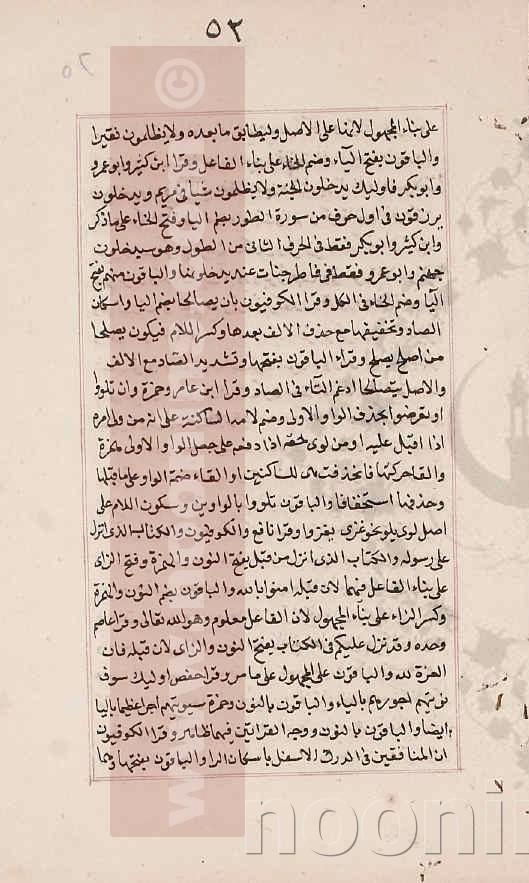 ٥٢
على بناء المجهول لانها على الاصل وليطابق ما بعده ولا يظلمون نقيرا
والباقون بفتح الياء وضم الخاء على بناء الفاعل وقرا ابن كثير وابو عمرو
وابو بكر فاوليك يدخلون الجنة ولا يظلمون شيا في مريم ويدخلون
يرزقون في اول حرف من سورة الطور بضم اليا وفتح الخاء على ما ذكر
وابن كثير وابو بكر فقط في الحرف الثاني من الطول وهو سيدخلون
جهنم وابو عمرو فقط في فاطر جنات عدن يدخلونها والباقون منهم بفتح
اليا وضم الخاء في الكل وقرا الكوفيون بان يصالحا بضم اليا واسكان
الصاد وتخفيفها مع حذف الالف بعدها وكسر اللام فيكون يصلحا
من اصلح يصلح وقراء الباقون بفتحها وتشديد الصاد مع الالف
والاصل يتصالحا ادغم التاء في الصاد وقرا ابن عامر وحمزة وان تلوا
او تعرضوا بحذف الواو الاولى وضم لامه الساكنة على انه من ولى امره
اذا اقبل عليه او من لوى حقه اذا دفعه على جعل الواو الاولى همزة
والقا حركتها فانحذفت للساكنين او القاء ضمة الواو على ما قبلها
وحذفها استخفافا والباقون تلووا بالواوين وسكون اللام على
اصل لوى يلو نحو غزى يغزوا وقرا نافع والكوفيون والكتاب الذي نزل
على رسوله والكتاب الذي انزل من قبل بفتح النون والهمزة وفتح الزاى
على بناء الفاعل فيهما لان قبله امنوا بالله والباقون بضم النون والهمزة
وكسر الزاء على بناء المجهول لان الفاعل معلوم وهو الله تعالى وقرا عاصم
وحده وقد نزل عليكم في الكتاب بفتح النون والزاى لان قبله فان
العزة لله والباقون على المجهول على ما مر وقرا حفص اوليك سوف
نوتيهم اجورهم بالياء والباقون بالنون وحمزة سيوتيهم اجرا عظيما باليا
ايضا والباقون بالنون ووجه القراتين فيهما ظاهر وقرا الكوفيون
ان المنافقين في الدرك الاسفل باسكان الرا والباقون بفتحها وهما